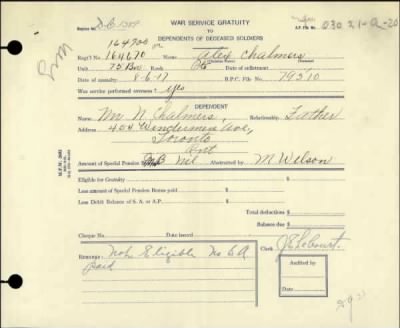 Register No. D.C. 1500
WAR SERVICE GRATUITY
TO
DEPENDENTS OF DECEASED SOLDIERS
A.P. File No. 03021-A-20
164700 or
Reg't No. 164670 Name Alex Chalmers
(Christian Name) (Surname)
Unit 75 Bn Rank Pte Date of enlistment
Date of casualty 8-6-17 B.P.C. File No. 79510
Was service performed overseas? yes
DEPENDENT
Name Mr N. Chalmers, Relationship Father
Address 404 Windermere Ave,
Toronto
Ont
Amount of Special Pension Bonus nil Abstracted by M Wilson
Eligible for Gratuity
Less amount of Special Pension Bonus paid
Less Debit Balance of S.A. or A.P.
Total deductions $
Balance due $
Cheque No. Date issued
Remarks Not Eligible No C A
paid
Clerk
Audited by
Date